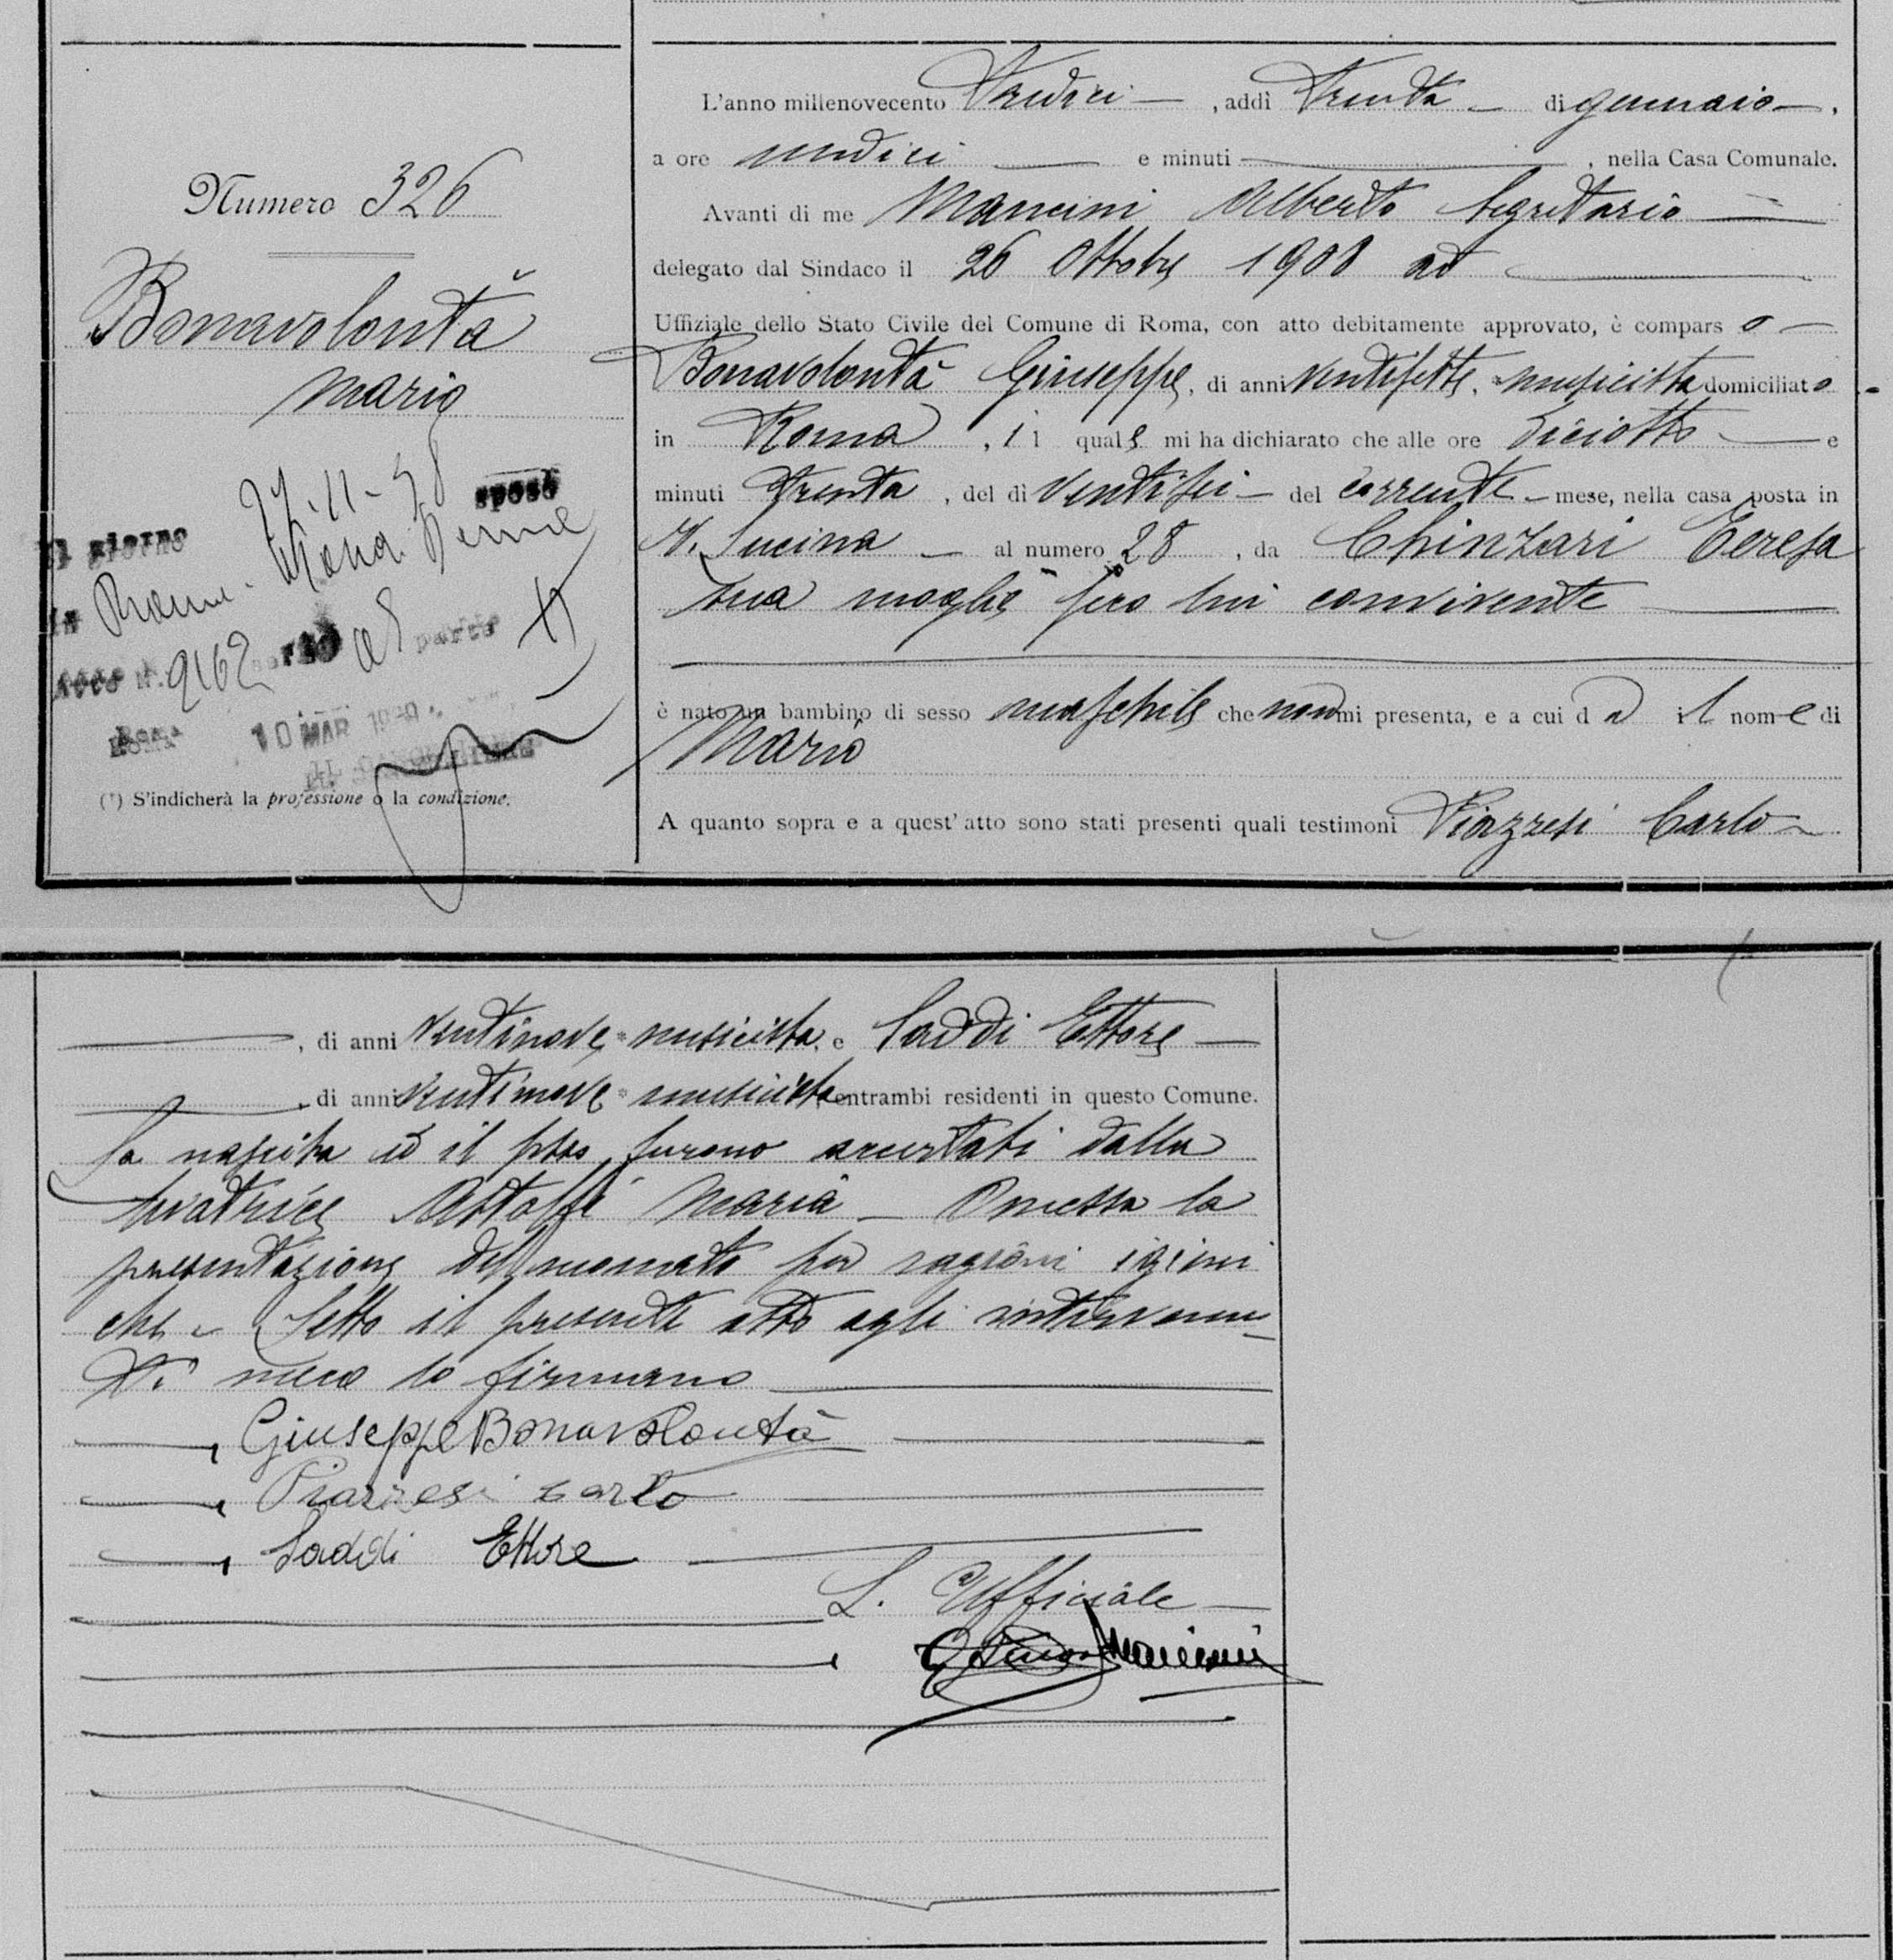 Numero 326
Bonavolontà
Mario
Il giorno 27-11-38 sposò
in Roma
Atto N. 2162 parte
Roma 10 MAR
(*) S'indicherà la professione o la condizione.
L'anno millenovecento tredici , addì trenta di gennaio ,
a ore undici e minuti , nella Casa Comunale.
Avanti di me Mancini Alberto Segretario
delegato dal Sindaco il 26 Ottobre 1908 ad
Uffiziale dello Stato Civile del Comune di Roma, con atto debitamente approvato, è comparso
Bonavolontà Giuseppe, di anni ventisette, musicista domiciliato
in Roma , il quale mi ha dichiarato che alle ore diciotto e
minuti trenta , del dì ventisei del corrente mese, nella casa posta in
V. Lucina al numero 28 , da Chinzari Teresa
sua moglie seco lui convivente
è nato un bambino di sesso maschile che non mi presenta, e a cui dà il nome di
Mario
A quanto sopra e a quest'atto sono stati presenti quali testimoni Piazzesi Carlo
, di anni ventinove musicista, e Saddi Ettore
, di anni ventinove musicista entrambi residenti in questo Comune.
La nascita ed il sesso furono accertati dalla
levatrice Astolfi Maria – Omessa la
presentazione del neonato per ragioni igieni
che – Letto il presente atto agli intervenu-
ti meco lo firmano
Giuseppe Bonavolontà
Piazzesi Carlo
Saddi Ettore
L. Ufficiale
Mancini